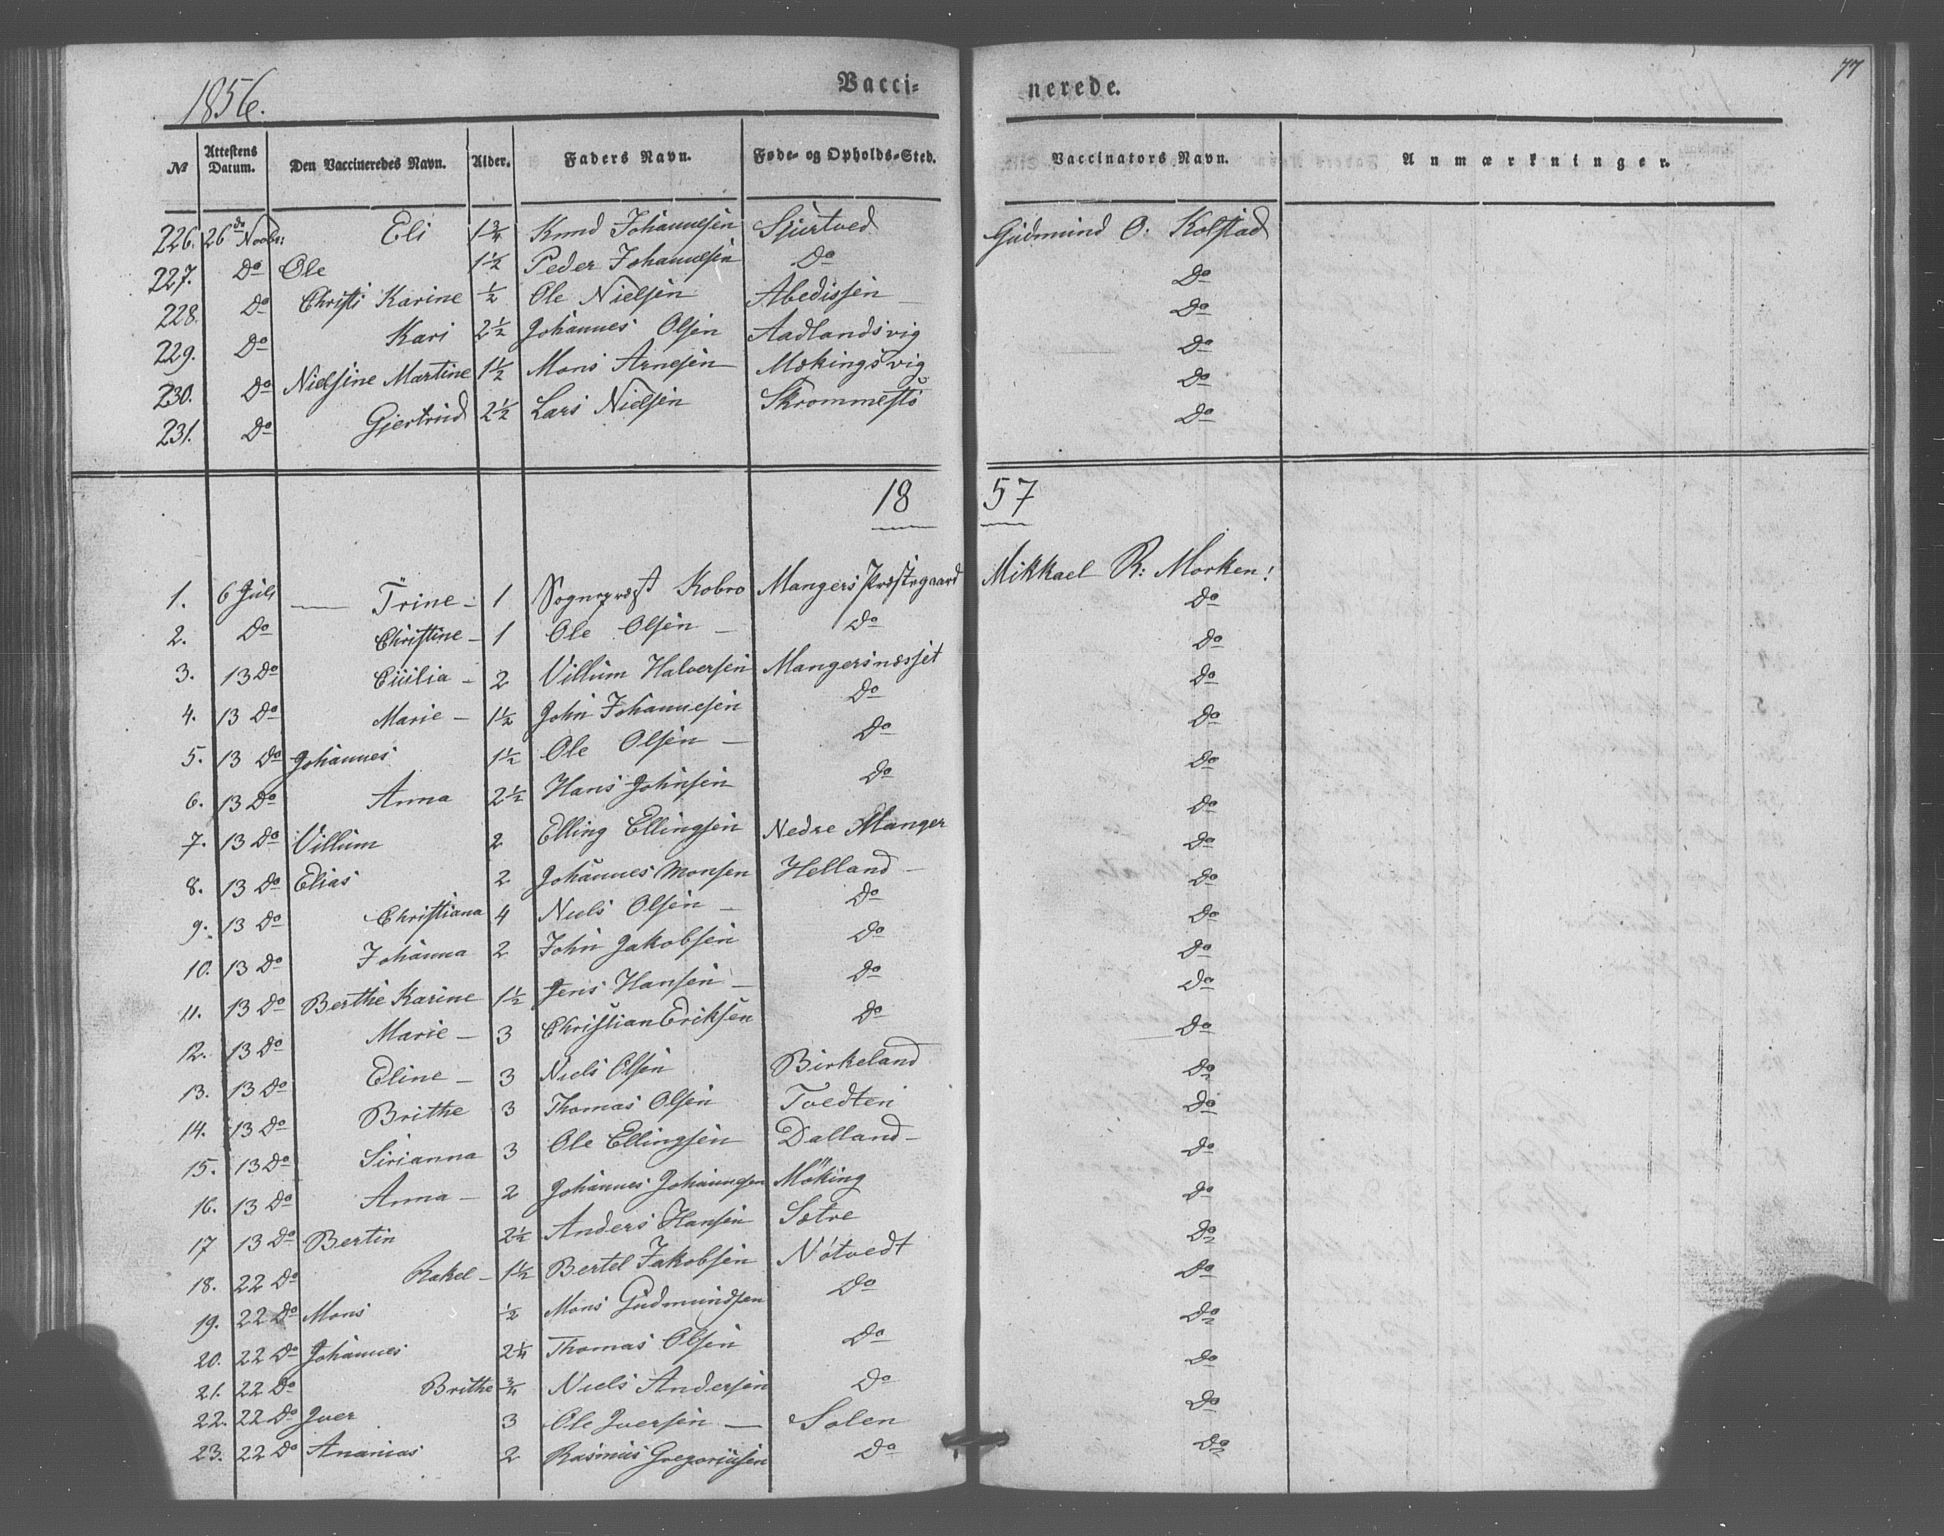 77
1856. Vacci- nerede.
No Attestens Datum. Den Vaccineredes Navn. Alder. Faders Navn. Føde- og Opholds-Sted. Vaccinators Navn. Anmærkninger.
226. 26de Novbr: Eli 1¾ Knud Johannesen Sjurtved Gudmund O. Kolstad
227. Do Ole 1½ Peder Johannesen Do Do
228. Do Christi Karine ½ Ole Nielsen Abedissen Do
229. Do Kari 2½ Johannes Olsen Aadlandsvig Do
230. Do Nielsine Martine 1½ Mons Arnesen Mækingsvig Do
231. Do Gjertrud 2½ Lars Nielsen Skrommestö Do
18 57
1. 6 Juli Trine 1 Sognepræst Kobro Mangers Præstegaard Mikkael R: Morken!
2. Do Christine 1 Ole Olsen Do Do
3. 13 Do Ciilia 2 Villum Halversen Mangersnæsset Do
4. 13 Do Marie 1½ John Johannesen Do Do
5. 13 Do Johannes 1½ Ole Olsen Do Do
6. 13 Do Anna 2½ Hans Johnsen Do Do
7. 13 Do Villum 2 Elling Ellingsen Nedre Manger Do
8. 13 Do Elias 2 Johannes Monsen Helland Do
9. 13 Do Christiana 4 Niels Olsen Do Do
10. 13 Do Johanna 2 John Jakobsen Do Do
11. 13 Do Berthe Karine 1½ Jens Hansen Do Do
12. 13 Do Marie 3 Christian Eriksen Do Do
13. 13 Do Eline 3 Niels Olsen Birkeland Do
14. 13 Do Brithe 3 Thomas Olsen Tvedten Do
15. 13 Do Sirianna 3 Ole Ellingsen Dalland Do
16. 13 Do Anna 2 Johannes Johannesen Möking Do
17 13 Do Bertin 2½ Anders Hansen Sætre Do
18. 22 Do Rakel 1½ Bertel Jakobsen Nötvedt Do
19. 22 Do Mons ½ Mons Gudmundsen Do Do
20. 22 Do Johannes 2¼ Thomas Olsen Do Do
21. 22 Do Brithe ¾ Niels Andersen Do Do
22. 22 Do Iver 3 Ole Iversen Solen Do
23. 22 Do Ananias 2 Rasmus Gregoriusen Do Do